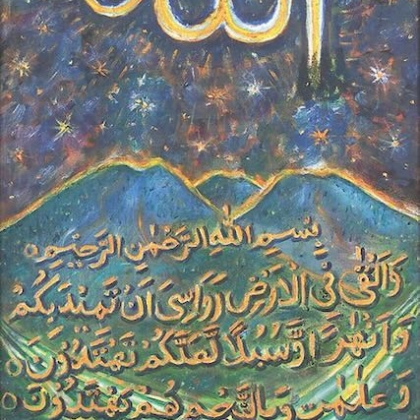 الله
بسم الله الرحمن الرحيم
وَالْقٰى فِى الْاَرْضِ رَوَاسِىَ اَنْ تَمِيْدَ بِكُمْ
وَاَنْهٰرًا وَّسُبُلًا لَّعَلَّكُمْ تَهْتَدُوْنَ
وَعَلٰمٰتٍ وَبِالنَّجْمِ هُمْ يَهْتَدُوْنَ